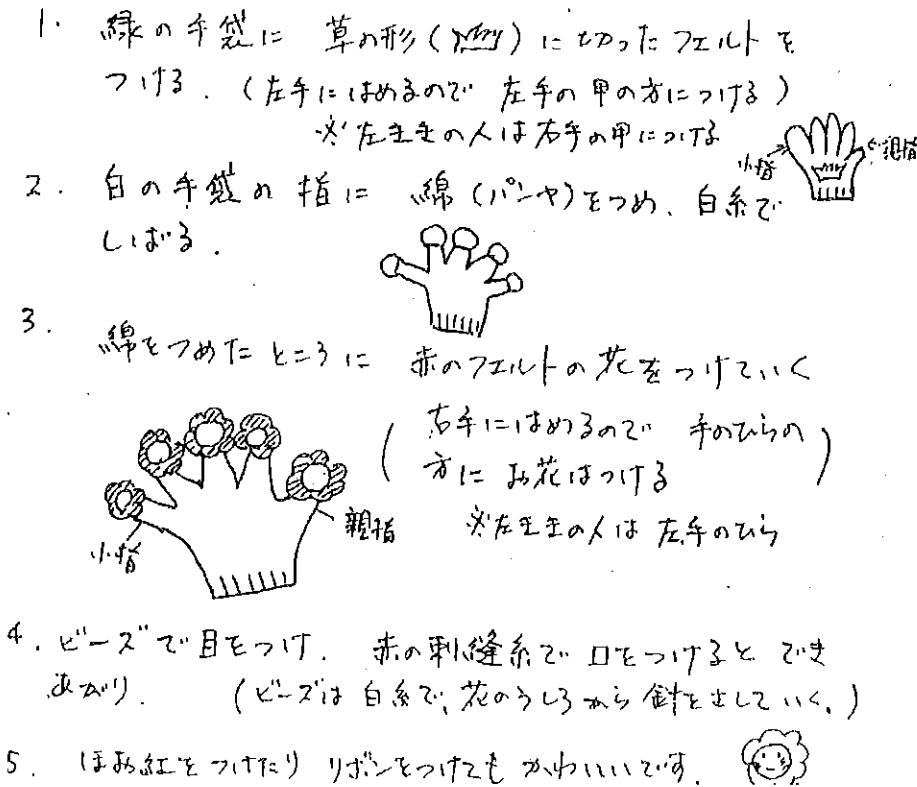 1. 緑の手袋に 草の形()に切ったフェルトを
つける.(左手にはめるので 左手の甲の方につける)
※左利きの人は右手の甲につける
小指
親指
2. 白の手袋の指に 綿(パンヤ)をつめ、白糸で
しばる.
3.
綿をつめたところに 赤のフェルトの花をつけていく
(右手にはめるので 手のひらの
方に お花はつける)
※左利きの人は 左手のひら
小指
親指
4. ビーズで目をつけ. 赤の刺繍糸で 口をつけると でき
あがり. (ビーズは白糸で、花のうしろから針をさしていく。)
5. ほお紅をつけたり リボンをつけても かわいいです.